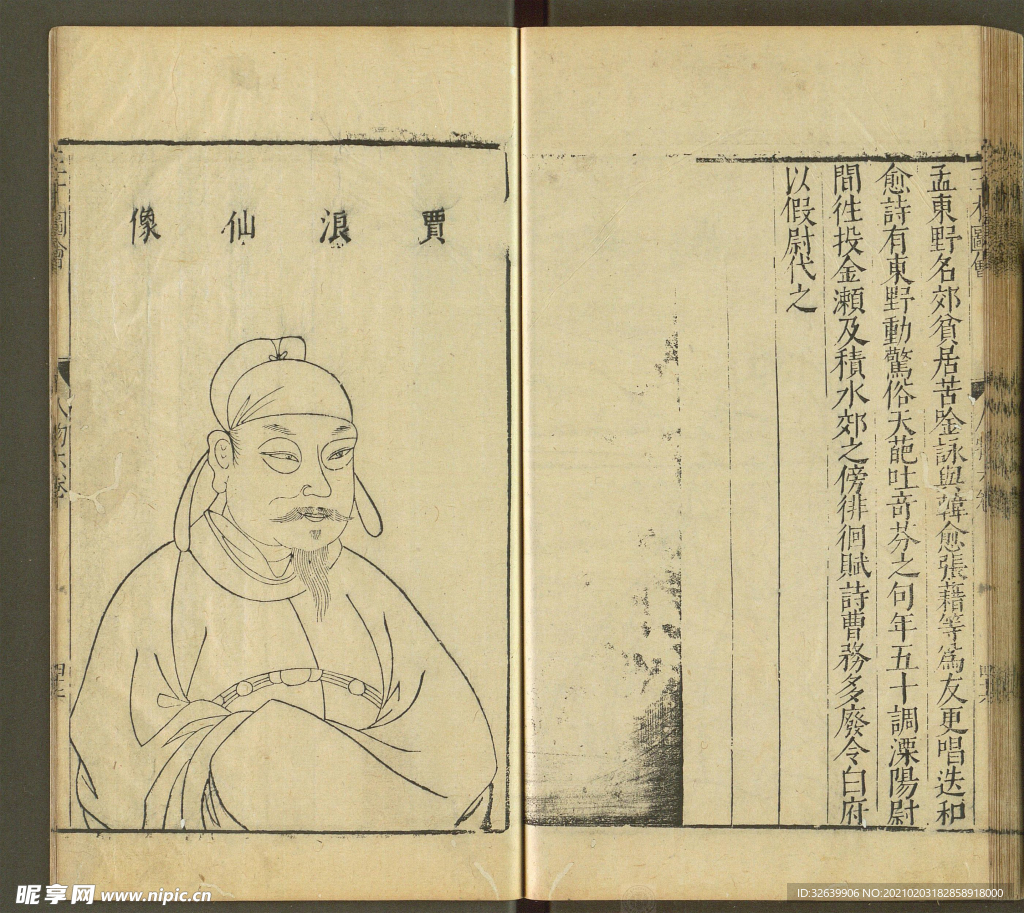 三才圖會
孟東野名郊貧居苦唫詠與韓愈張藉等爲友更唱迭和
愈詩有東野動驚俗天葩吐竒芬之句年五十調溧陽尉
間徃投金瀨及積水郊之傍徘徊賦詩曹務多廢令白府
以假尉代之
賈浪仙像
人物六卷
昵享网 www.nipic.cn
ID:32639906 NO:20210203182858918000